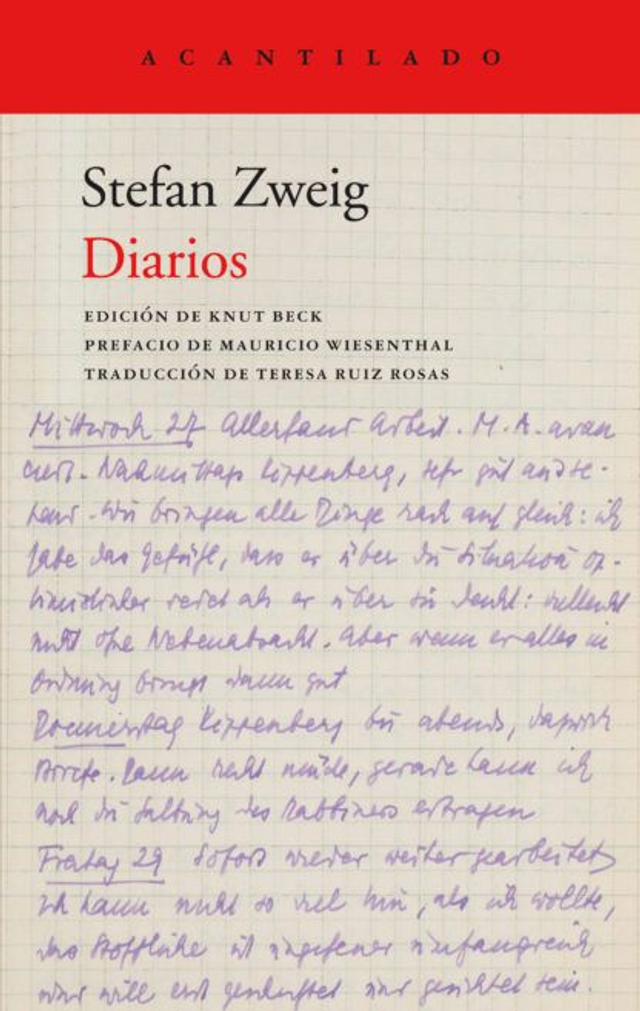 ACANTILADO
Stefan Zweig
Diarios
EDICIÓN DE KNUT BECK
PREFACIO DE MAURICIO WIESENTHAL
TRADUCCIÓN DE TERESA RUIZ ROSAS
Mittwoch 27 Allerhand Arbeit. M. A. avan
ciert. Nachmittags Kippenberg, sehr gut ausse-
hend. Wir bringen alle Dinge rasch auf gleich: ich
habe das Gefühl, dass er über die Situation op-
timistischer redet als er über sie denkt: vielleicht
nicht ohne Nebenabsicht. Aber wenn er alles in
Ordnung bringt dann gut
Donnerstag Kippenberg bis abends, dazwischen
Briefe. Dann recht müde, gerade kann ich
noch die des Rabbiners ertragen
Freitag 29 Sofort wieder weiter gearbeitet
Ich kann nicht so viel thun, als ich wollte,
das Stoffliche ist ungeheuer umfangreich
und will erst gesichtet sein.